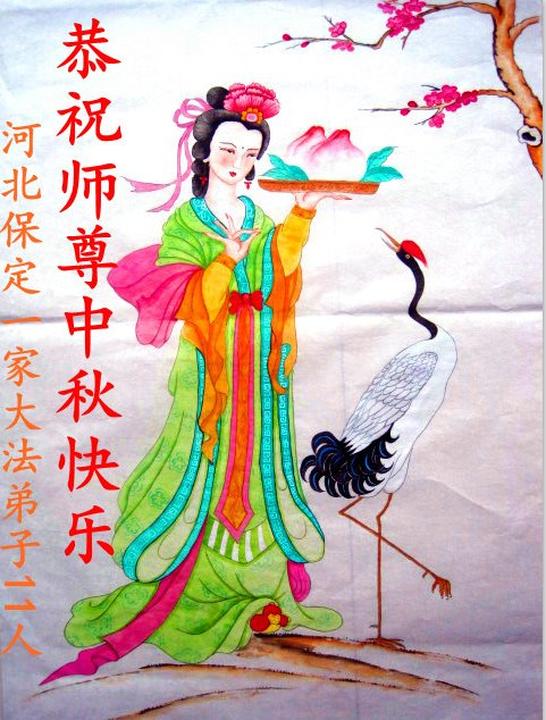 恭祝师尊中秋快乐
河北保定一家大法弟子11人